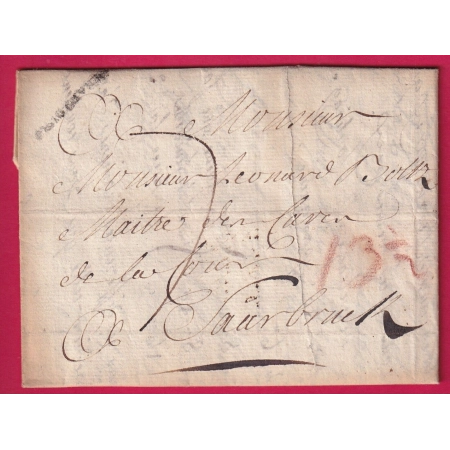 Monsieur
Monsieur Leonard Boltz
Maitre des Caves
de la Cour
Saarbruck
13½